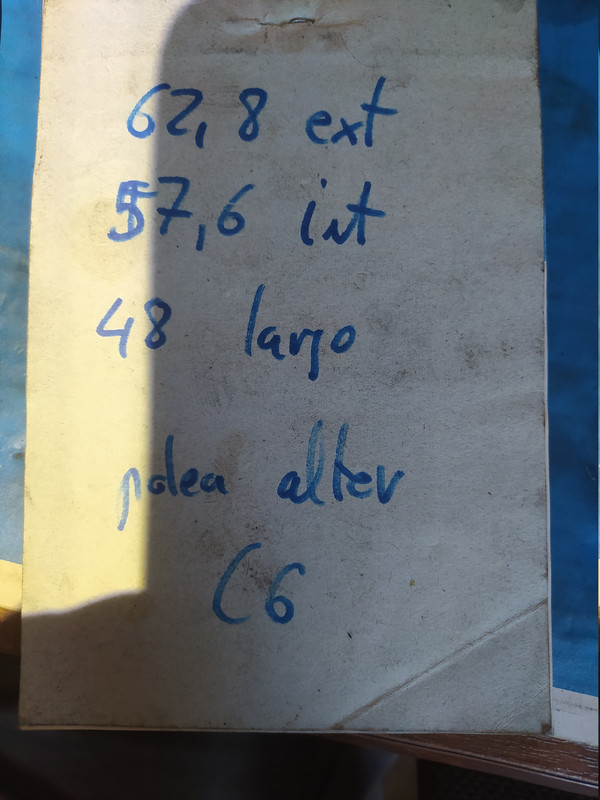 62,8 ext
57,6 int
48 largo
polea alter
C6